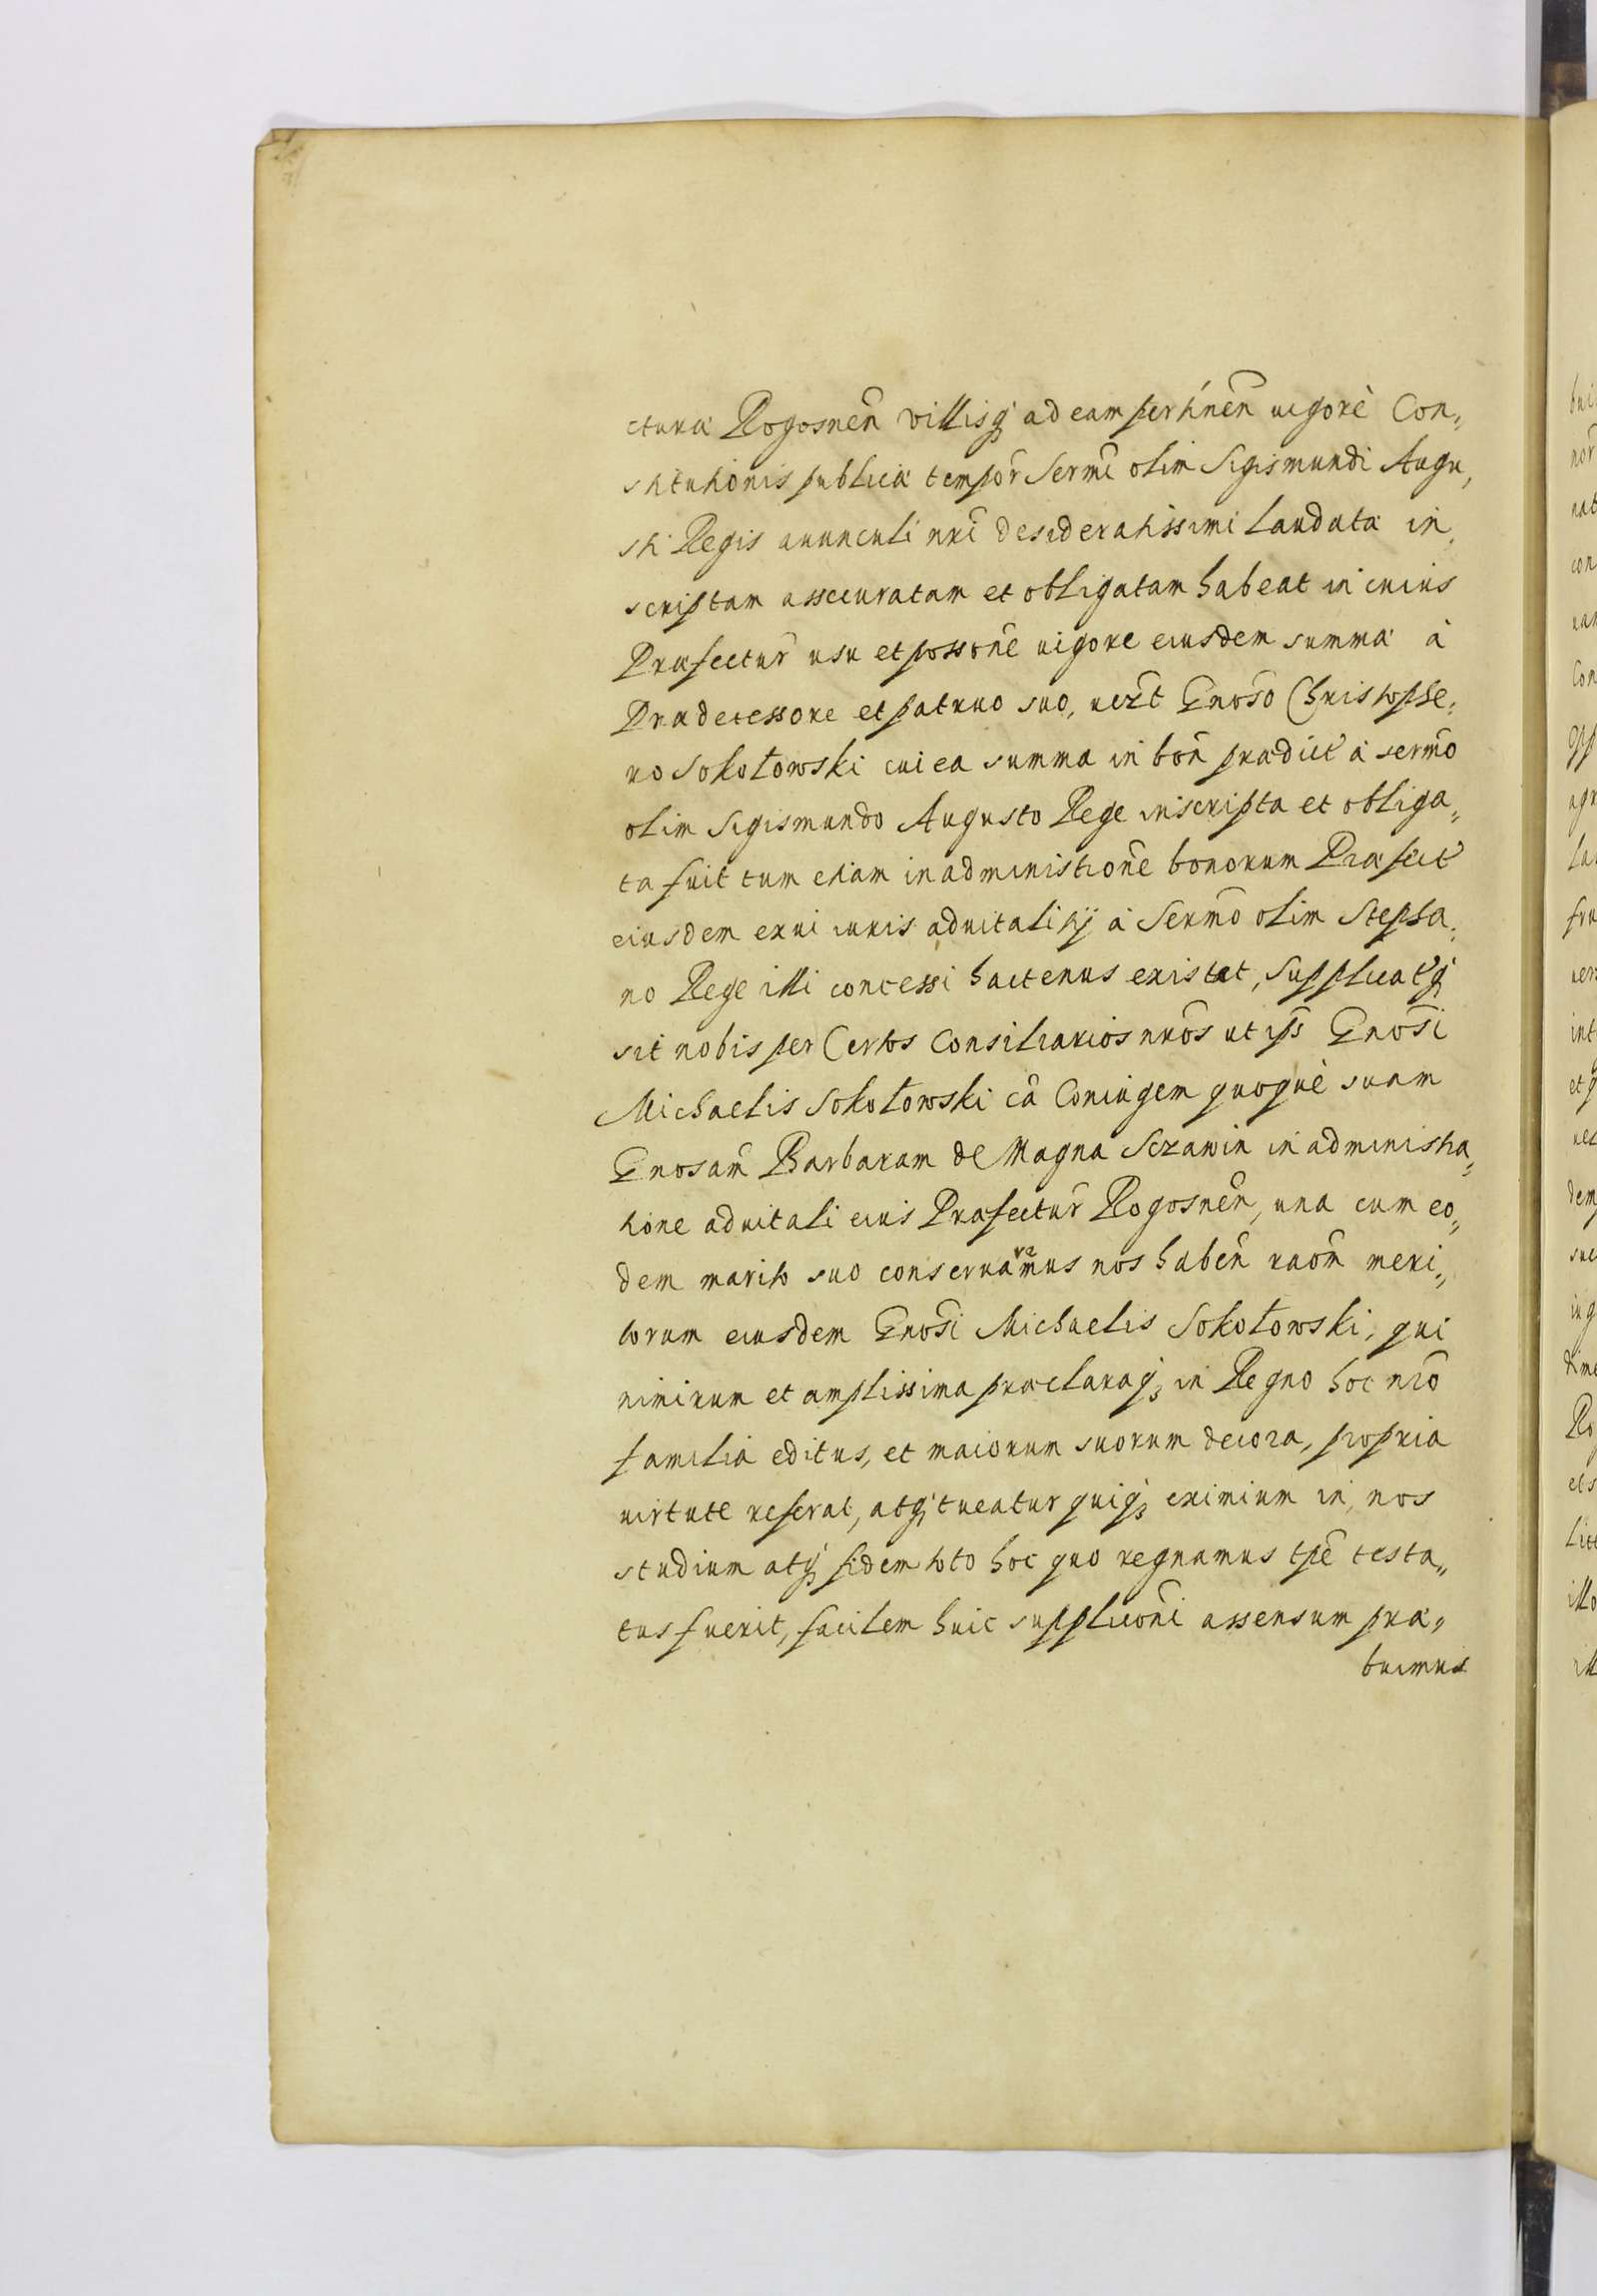 ctura Rogosnen̄ villisq̨ ad eam pertinen̄ uigore Con„
stitutionis publica tempor̄ Sermi olim Sigismundi Augu„
sti Regis auunculi nr̄i desideratissimi laudata in„
scriptam assecuratam et obligatam habeat in cuius
Præfectur̄ usu et possōne uigore eiusdem summa à
Prædecessore et patruo suo, uizt Gnōso Christophe„
ro Sokołowski cui ea summa in bon̄ prædict à sermō
olim Sigismundo Augusto Rege inscripta et obliga„
ta fuit tum etiam in administrōne bonorum Præfect
eiusdem ex ui iuris aduitalitij à Sermō olim Stepha„
no Rege illi concessi hactenus existat, supplicatq̨
sit nobis per Certos Consiliarios nrōs ut ips̄ Gnōsi
Michaelis Sokołowski cā Coniugem quoquè suam
Gnosam̄ Barbaram de Magna Sczawin in administra„
tione aduitali eius Præfectur̄ Rogosnen̄, una cum eo„
dem marito suo conseruaremus nos haben̄ raōn meri„
torum eiusdem Gnōsi Michaelis Sokołowski, qui
nimirum et amplissima præclaraq̨ in Regno hoc nrō
familia editus, et maiorum suorum decora, propria
uirtute referat, atq̨ tueatur quiq̨ eximium in nos
studium atq̨ fidem toto hoc quo regnamus tpē testa„
tus fuerit, facilem huic supplicōni assensum præ„
buimus